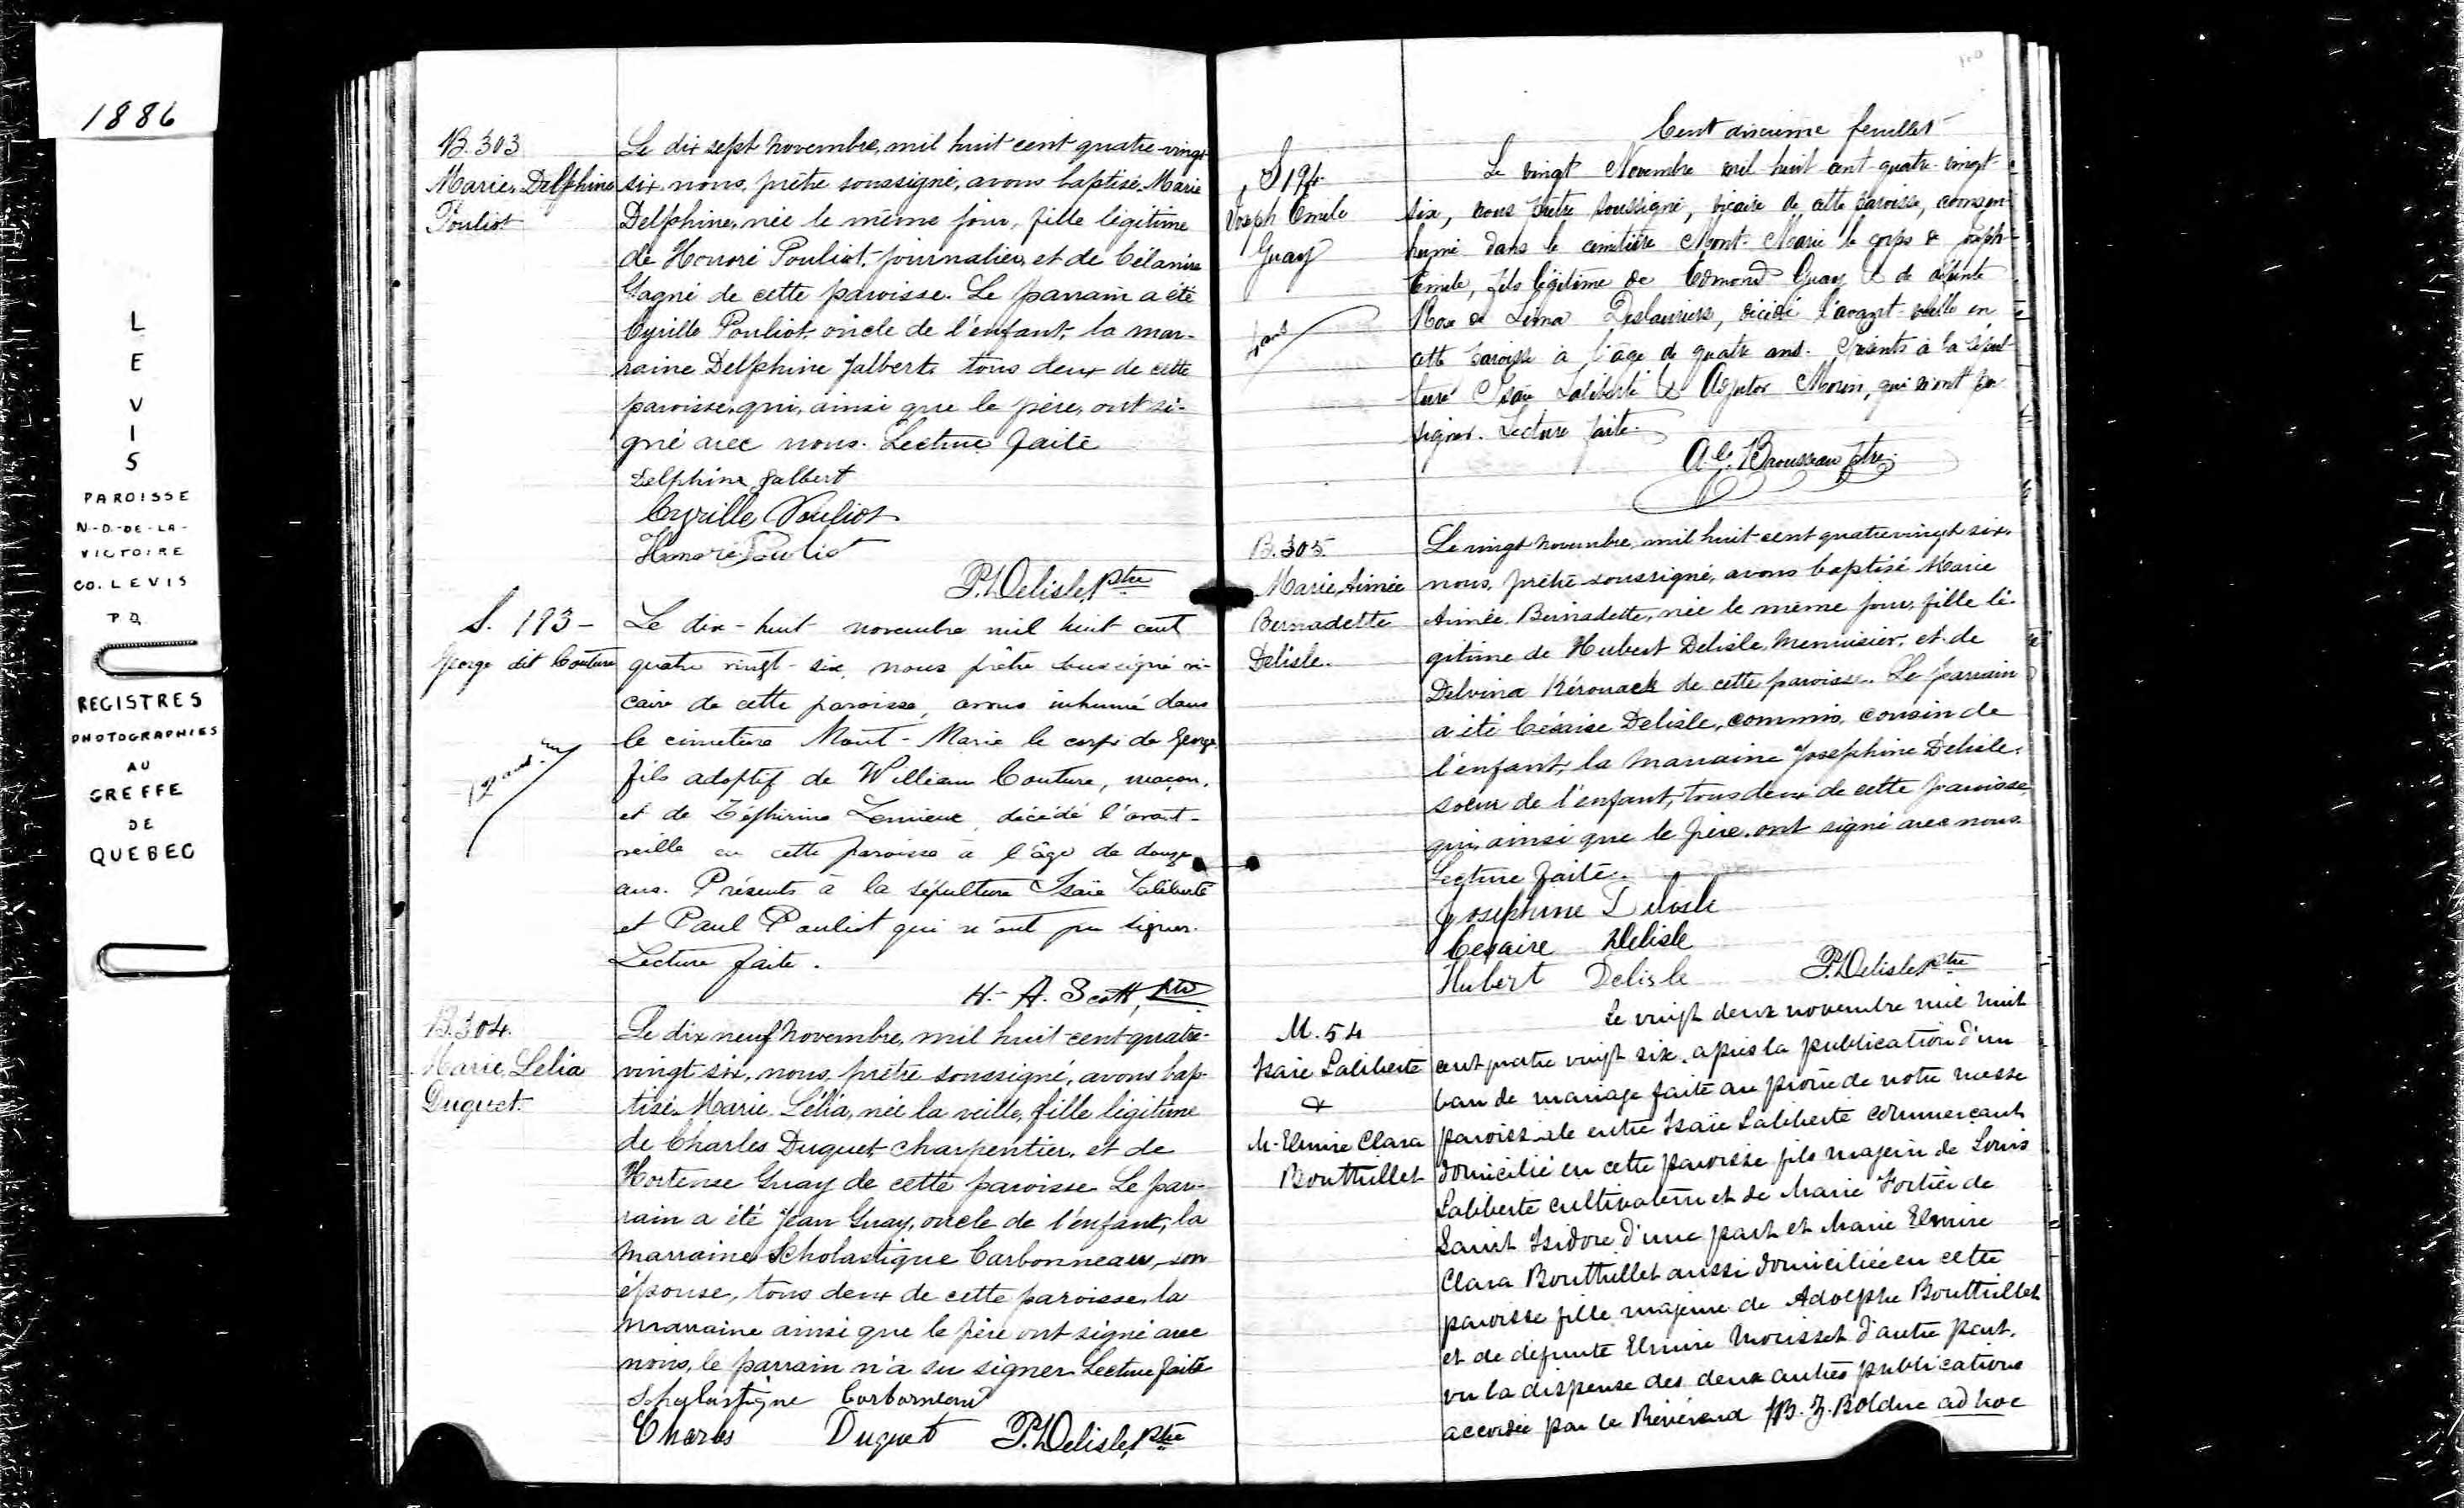 1886
L
E
V
I
S
PAROISSE
N.-D.-DE-LA-
VICTOIRE
CO. LEVIS
P Q
REGISTRES
PHOTOGRAPHIES
AU
GREFFE
DE
QUEBEC
B. 303
Marie, Delphine
Pouliot
Le dix sept novembre, mil huit cent quatre-vingt
six, nous, prêtre soussigné, avons baptisé, Marie
Delphine, née le même jour, fille légitime
de Honoré Pouliot, journalier, et de Célanire
Gagné de cette paroisse. Le parrain a été
Cyrille Pouliot, oncle de l'enfant, la mar-
raine Delphine Jalbert, tous deux de cette
paroisse, qui, ainsi que le père, ont si-
gné avec nous. Lecture faite
Delphine Jalbert
Cyrille Pouliot
Honoré Pouliot
P. Delisle, Ptre
S. 193-
George dit Couture
12 ans
Le dix-huit novembre mil huit cent
quatre vingt-six, nous prêtre soussigné vi-
caire de cette paroisse, avons inhumé dans
le cimetière Mont-Marie le corps de George,
fils adoptif de William Couture, maçon,
et de Zéphirine Lemieux, décédé l'avant-
veille en cette paroisse à l'âge de douze
ans. Présents à la sépulture Isaïe Laliberté
et Paul Pouliot qui n'ont pu signer.
Lecture faite.
H.-A. Scott, ptre
B. 304.
Marie, Lélia
Duguet.
Le dix neuf novembre, mil huit-cent-quatre-
vingt six, nous, prêtre soussigné, avons bap-
tisé, Marie, Lélia, née la veille, fille légitime
de Charles Duguet charpentier, et de
Hortense Guay de cette paroisse Le par-
rain a été Jean Guay, oncle de l'enfant, la
marraine Scholastique Carbonneau, son
épouse, tous deux de cette paroisse, la
marraine ainsi que le père ont signé avec
nous, le parrain n'a su signer Lecture faite
Scholastique Carbonneau
Charles Duguet P. Delisle, Ptre
Cent dixième feuillet
S 194.
Joseph Emile
Guay
4 ans
Le vingt Novembre mil huit cent quatre-vingt-
six, nous prêtre soussigné, vicaire de cette paroisse, avons in-
humé dans le cimetière Mont-Marie le corps de Joseph-
Emile, fils légitime de Edmond Guay & de défunte
Rose de Lima Deslauriers, décédé l'avant-veille en
cette paroisse à l'âge de quatre ans. Présents à la sépul-
ture Isaïe Laliberté & Adjutor Morin, qui n'ont pu
signer. Lecture faite.
A. C. Brousseau Ptre.
B. 305
Marie, Aimée
Bernadette
Delisle.
Le vingt novembre, mil huit-cent quatrevingt six,
nous, prêtre soussigné, avons baptisé Marie
Aimée Bernadette, née le même jour, fille lé-
gitime de Hubert Delisle, menuisier, et de
Delvina Kérouack de cette paroisse. Le parrain
a été Césaire Delisle, commis, cousin de
l'enfant, la marraine Joséphine Delisle,
soeur de l'enfant, tous deux de cette paroisse,
qui, ainsi que le père, ont signé avec nous
Lecture faite.
Josephine Delisle
Cesaire Delisle
Hubert Delisle P. Delisle, Ptre
M. 54
Isaïe Laliberté
&
M-Elmire Clara
Bouthillet
Le vingt deux novembre mil huit
cent quatre vingt six, après la publication d'un
ban de mariage faite au prône de notre messe
paroissiale entre Isaïe Laliberté commerçant
domicilié en cette paroisse fils majeur de Louis
Laliberté cultivateur et de Marie Fortier de
Saint Isidore d'une part et Marie Elmire
Clara Bouthillet aussi domiciliée en cette
paroisse fille majeure de Adolphe Bouthillet
et de défunte Elmire Morisset d'autre part,
vu la dispense des deux autres publications
accordée par le Révérend J.B. Z. Bolduc ad hoc